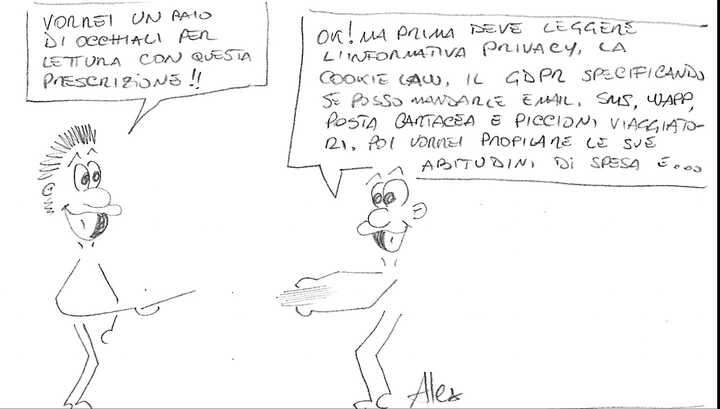 VORREI UN PAIO
DI OCCHIALI PER
LETTURA CON QUESTA
PRESCRIZIONE!!
OK! MA PRIMA DEVE LEGGERE
L'INFORMATIVA PRIVACY, LA
COOKIE LAW, IL GDPR SPECIFICANDO
SE POSSO MANDARLE EMAIL, SMS, WAPP,
POSTA CARTACEA E PICCIONI VIAGGIATO-
RI. POI VORREI PROFILARE LE SUE
ABITUDINI DI SPESA E...
Alex